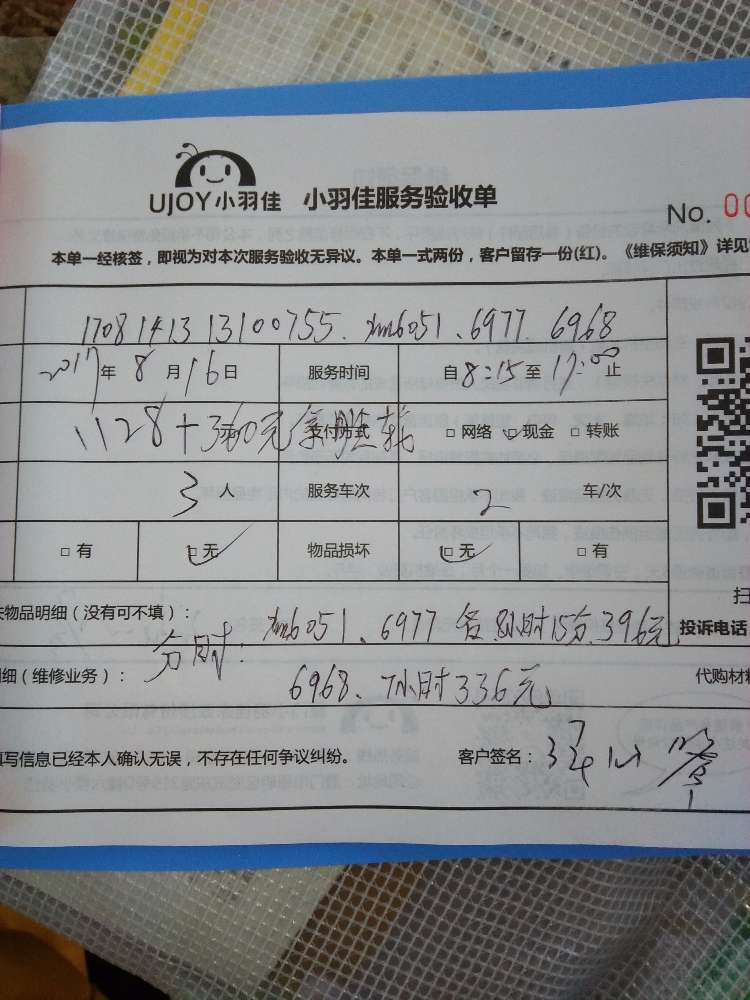 UJOY小羽佳 小羽佳服务验收单
No. 00
本单一经核签，即视为对本次服务验收无异议。本单一式两份，客户留存一份(红)。《维保须知》详见
1708141313100755. xm6051、6977、6968
2017年8月16日 服务时间 自8:15至17:00止
1128+360元 支付方式 □ 网络 □ 现金 □ 转账
3人 服务车次 2 车/次
□ 有 □ 无 物品损坏 □ 无 □ 有
物品明细（没有可不填）： xm6051、6977各8小时15分.396元 投诉电话
分时：
细（维修业务）： 6968、7小时336元 代购材料
写信息已经本人确认无误，不存在任何争议纠纷。 客户签名：